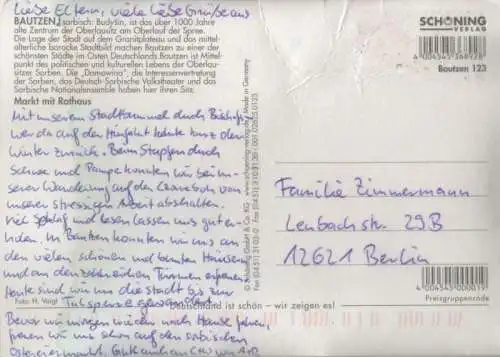 Liebe Eltern, viele liebe Grüße aus
BAUTZEN, sorbisch: Budyšin, ist das über 1000 Jahre
alte Zentrum der Oberlausitz am Oberlauf der Spree.
Die Lage der Stadt auf dem Granitplateau und das mittel-
alterliche barocke Stadtbild machen Bautzen zu einer der
schönsten Städte im Osten Deutschlands. Bautzen ist Mittel-
punkt des politischen und kulturellen Lebens der Oberlau-
sitzer Sorben. Die „Domowina", die Interessenvertretung
der Sorben, das Deutsch-Sorbische Volkstheater und das
Sorbische Nationalensemble haben hier ihren Sitz.
Markt mit Rathaus
Mit unserem
werda auf der Hinfahrt kehrte kurz der
Winter zurück. Beim Stapfen durch
Schnee und Pampe konnten wir bei un-
serer Wanderung auf den
unserer stressigen Arbeit abschalten.
Viel Schlaf und Lesen lassen uns gut er-
holen. In Bautzen konnten wir uns an
den vielen schönen und bunten Häusern
und an den zahlreichen Türmen erfreuen.
Heute sind wir um die Stadt bis zur
Talsperre gewandert.
Bevor wir morgen wieder nach Hause fahren,
freuen wir uns schon auf den sorbischen
Ostereiermarkt.
Foto: H. Voigt
Deutschland ist schön – wir zeigen es!
© Schöning GmbH & Co. KG · Fax (0451) 3103-0 · www.schoening-verlag.de / Made in Germany
SCHÖNING
VERLAG
4 004545 368928
Bautzen 123
Familie Zimmermann
Lenbachstr. 29B
12621 Berlin
4 004545 000019
Preisgruppencode